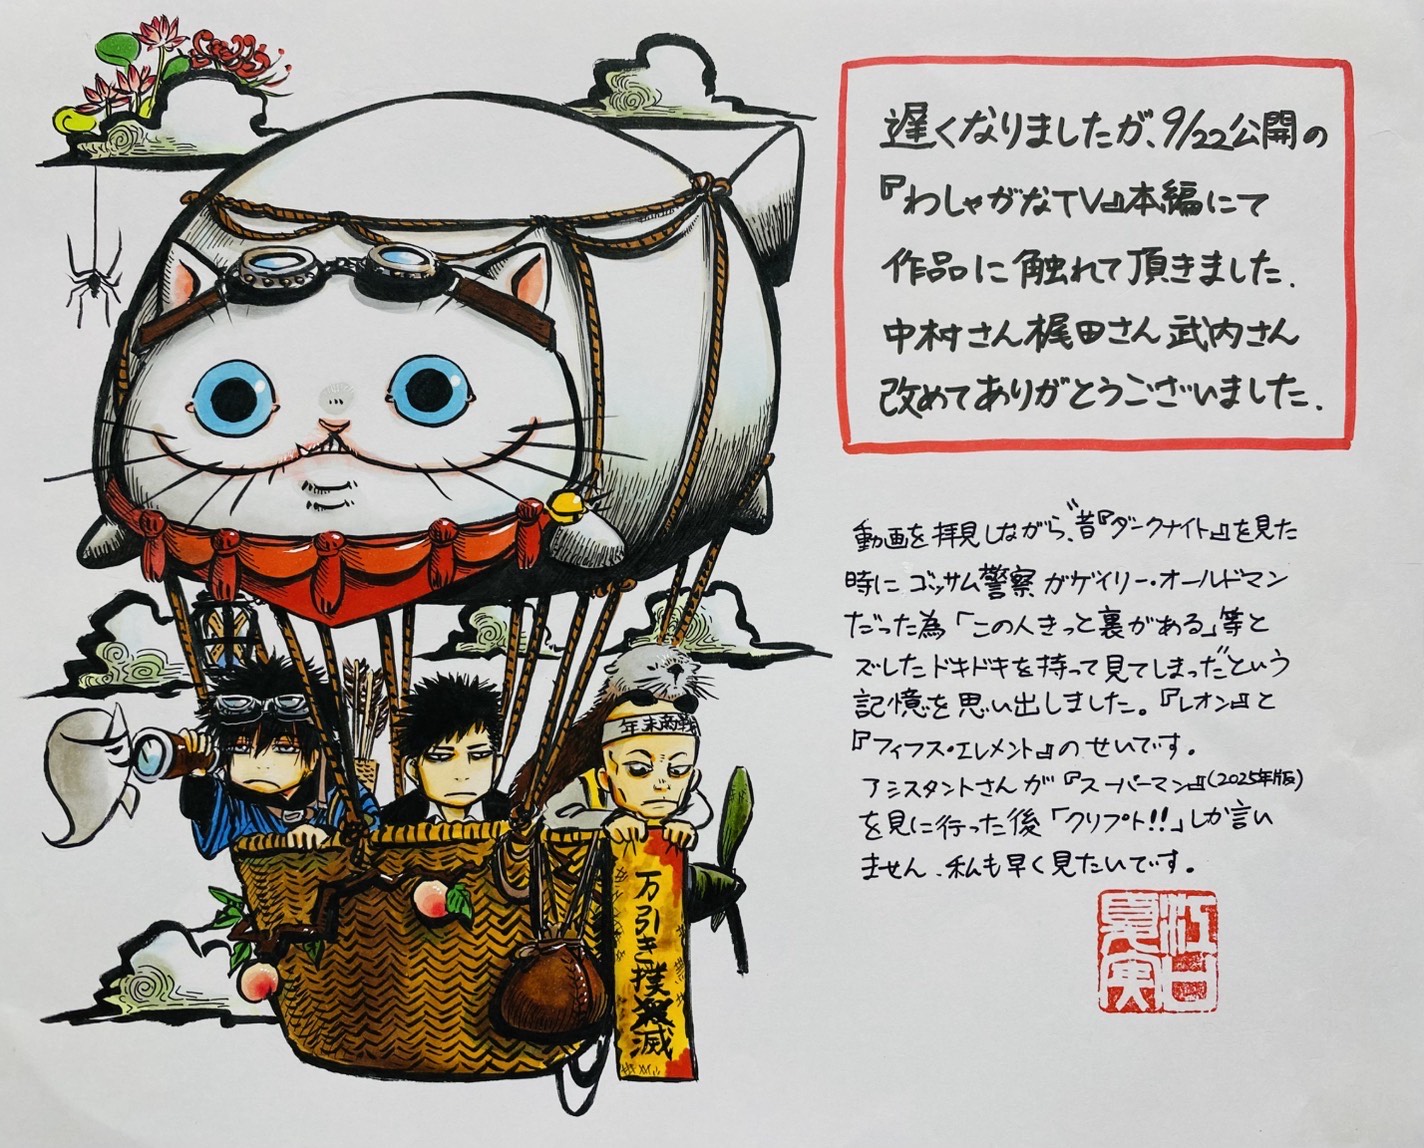 遅くなりましたが、9/22公開の
『わしゃがなTV』本編にて
作品に触れて頂きました.
中村さん梶田さん武内さん
改めてありがとうございました.
動画を拝見しながら、"昔『ダークナイト』を見た
時にゴッサム警察がゲイリー・オールドマン
だった為「この人きっと裏がある」等と
ズレたドキドキを持って見てしまった"という
記憶を思い出しました。『レオン』と
『フィフス・エレメント』のせいです。
アシスタントさんが『スーパーマン』(2025年版)
を見に行った後「クリプト!!」しか言い
ません.私も早く見たいです。
江口夏実
年末商戦
万引き撲滅